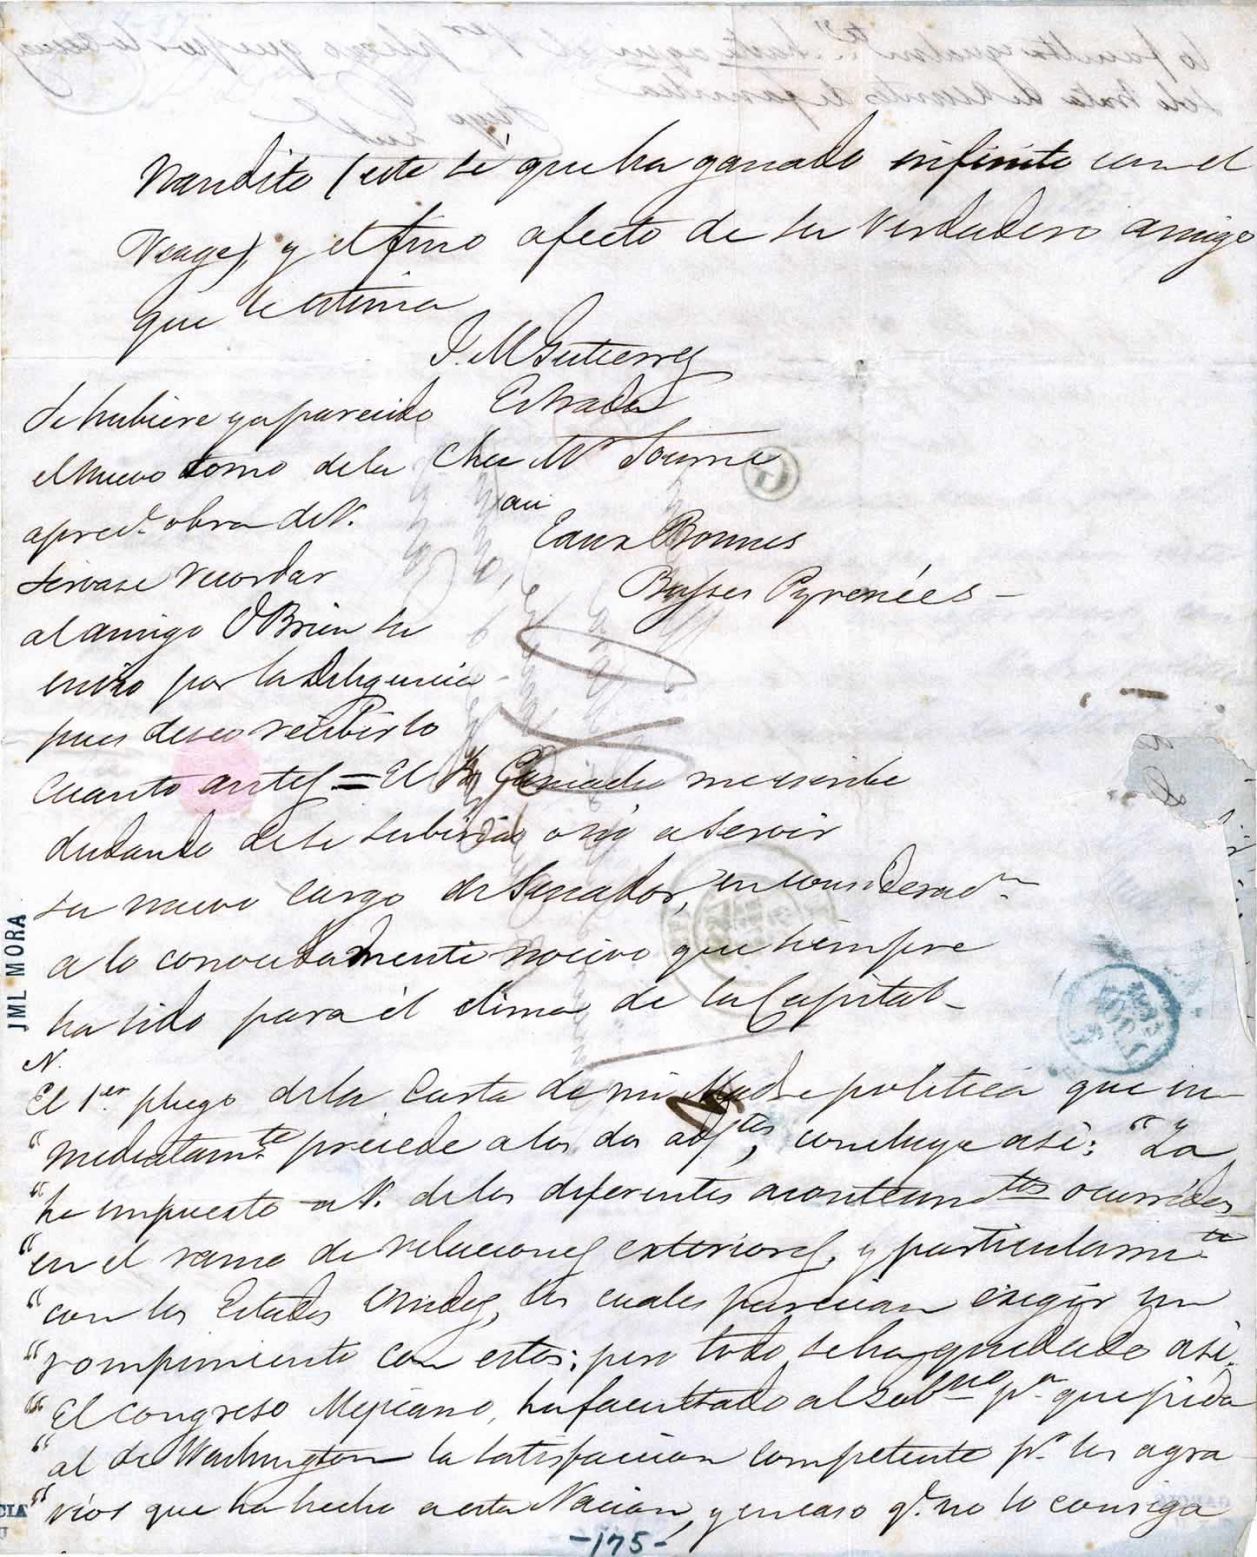 Nandito (este sé que ha ganado infinito con el
Viage) y el fino afecto de su verdadero amigo
que le estima
J. M Gutierrez
Estrada
Chez Mr Tourné
aux
Eaux Bonnes
Basses Pyrenées -
Si hubiere ya parecido
el nuevo tomo de la
aprec.e obra de V.
sirvase recordar
al amigo O Brien su
envio por la Diligencia
pues deseo recibirlo
cuanto antes = El Sr me escribe
dudando de si subiria o nó a servir
su nuevo cargo de Senador, en considerad.n
a lo conocidamente nocivo que siempre
ha sido para él el clima de la Capital -
JML MORA
N.
El 1.er pliego de la Carta de mi Madre politica que in-
"mediatam.te precede a los dos adj.tos, concluye asi: "La
"he impuesto a V. de los diferentes acontecim.tos ocurridos
"en el ramo de relaciones exteriores, y particularm.te
"con los Estados Unidos, los cuales parecian exigir un
"rompimiento con estos; pero todo se ha quedado asi.
"El congreso Mejicano, ha facultado al Gob.no p.a que pida
"al de Washington la satisfaccion competente p.r los agra-
"vios que ha hecho a esta Nacion, y en caso q.e no lo consiga
-175-